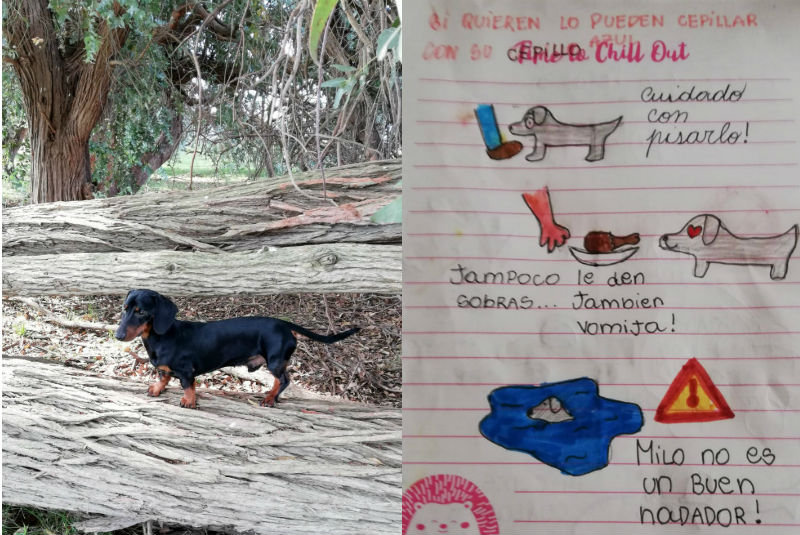 Si QUIEREN LO PUEDEN CEPILLAR
CON SU CEPILLO AZUL
Time to Chill Out
Cuidado
con
pisarlo!
Tampoco le den
SOBRAS... Tambien
vomita!
MiLO no es
un Buen
NADADOR!